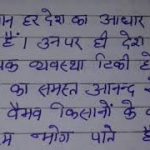 हर देश का आधार
हैं । उन पर ही देश
व्यवस्था टिकी है
का समस्त आनन्द
वैभव किसानों के
भोग पाते हैं